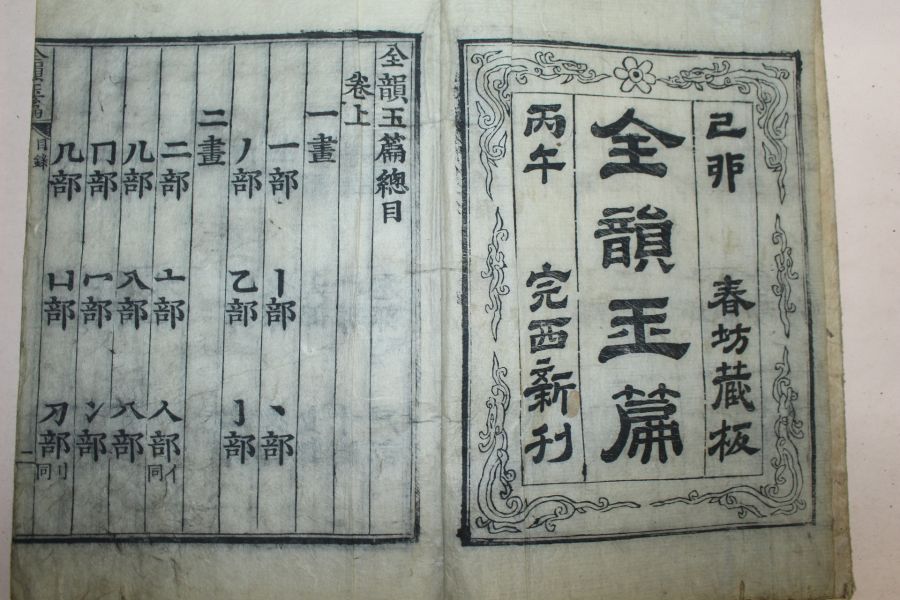 己卯 春坊藏板
全韻玉篇
丙午 完西新刊
全韻玉篇總目
卷上
一畫
一部 丨部 丶部
丿部 乙部 亅部
二畫
二部 亠部 人部亻同
儿部 入部 八部
冂部 冖部 冫部
几部 凵部 刀部刂同
全韻玉篇 目錄 一